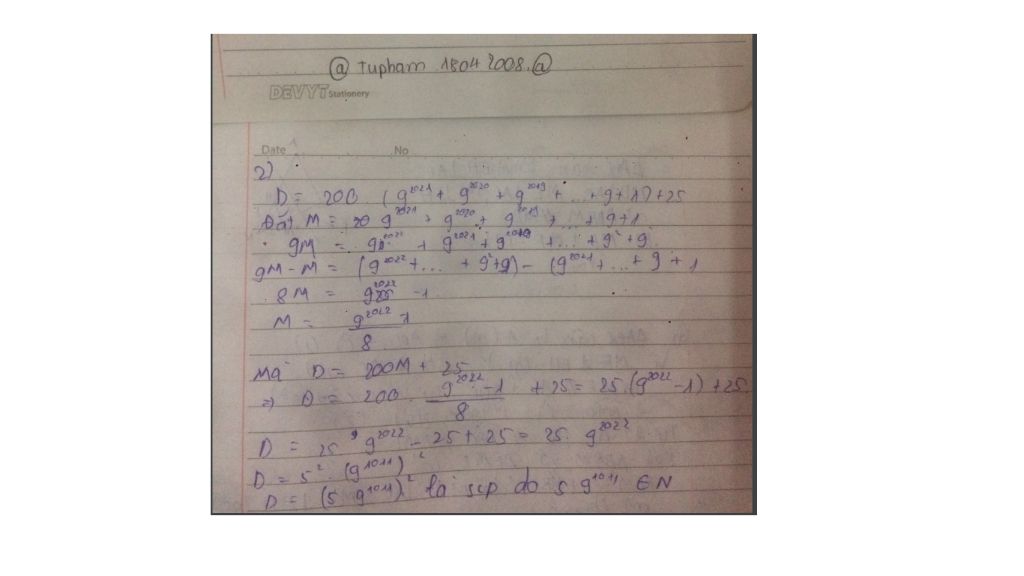 @ Tupham 18042008.@
DEVYT Stationery
Date No
2)
D = 200 (9²⁰²¹ + 9²⁰²⁰ + 9²⁰¹⁹ + ... + 9 + 1) + 25
Đặt M = 9²⁰²¹ + 9²⁰²⁰ + 9²⁰¹⁹ + ... + 9 + 1
9M = 9²⁰²² + 9²⁰²¹ + 9²⁰²⁰ + ... + 9² + 9
9M - M = (9²⁰²² + ... + 9² + 9) - (9²⁰²¹ + ... + 9 + 1
8M = 9²⁰²² - 1
M = 9²⁰²² - 1 / 8
Mà D = 200M + 25
=> D = 200 . 9²⁰²² - 1 / 8 + 25 = 25 (9²⁰²² - 1) + 25
D = 25 . 9²⁰²² - 25 + 25 = 25. 9²⁰²²
D = 5² . (9¹⁰¹¹)²
D = (5 9¹⁰¹¹)² là scp do 5 9¹⁰¹¹ ∈ N